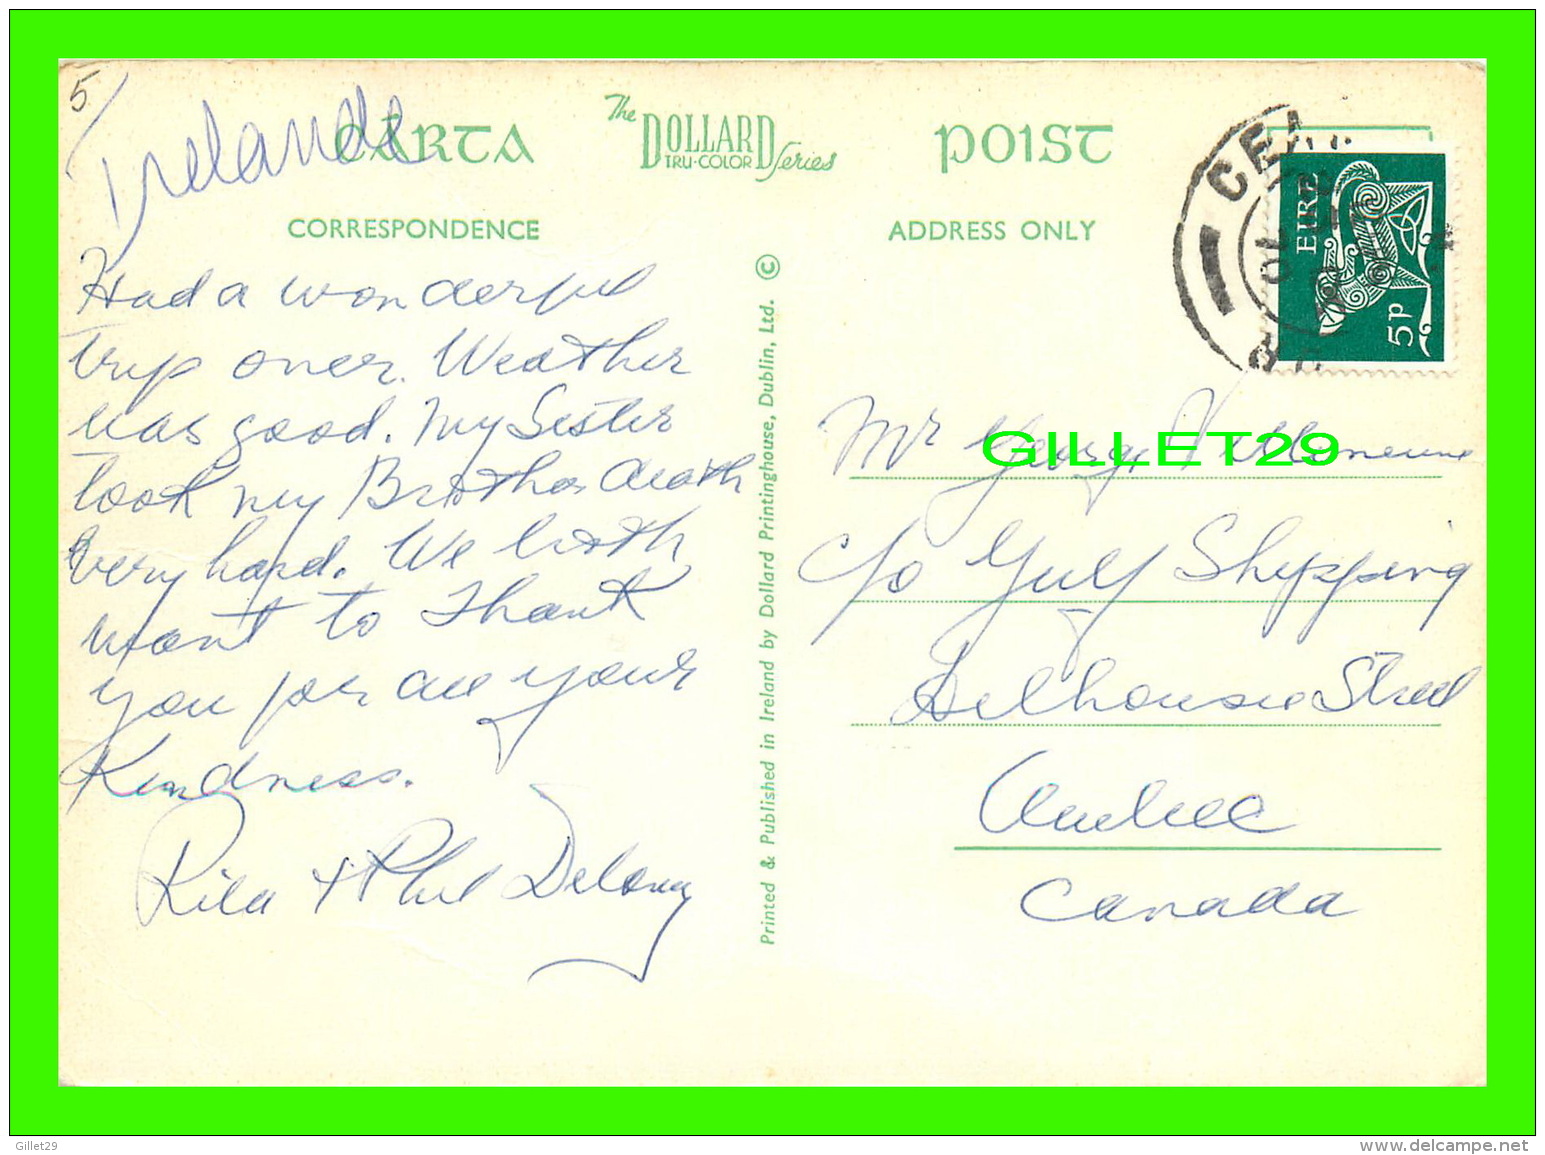 5/
Irelande
CARTA
The
DOLLARD
TRU-COLOR Series
POIST
CORRESPONDENCE
ADDRESS ONLY
EIRE
5p
Had a wonderful
trip over. Weather
was good. My Sister
took my Brothers death
very hard. We both
want to thank
you for all your
Kindness.
Rita + Phil Delaney
Printed & Published in Ireland by Dollard Printinghouse, Dublin, Ltd. ©
Mr George
c/o Gulf Shipping
Delhousie Street
Quebec
Canada
GILLET29
Gillet29
www.delcampe.net